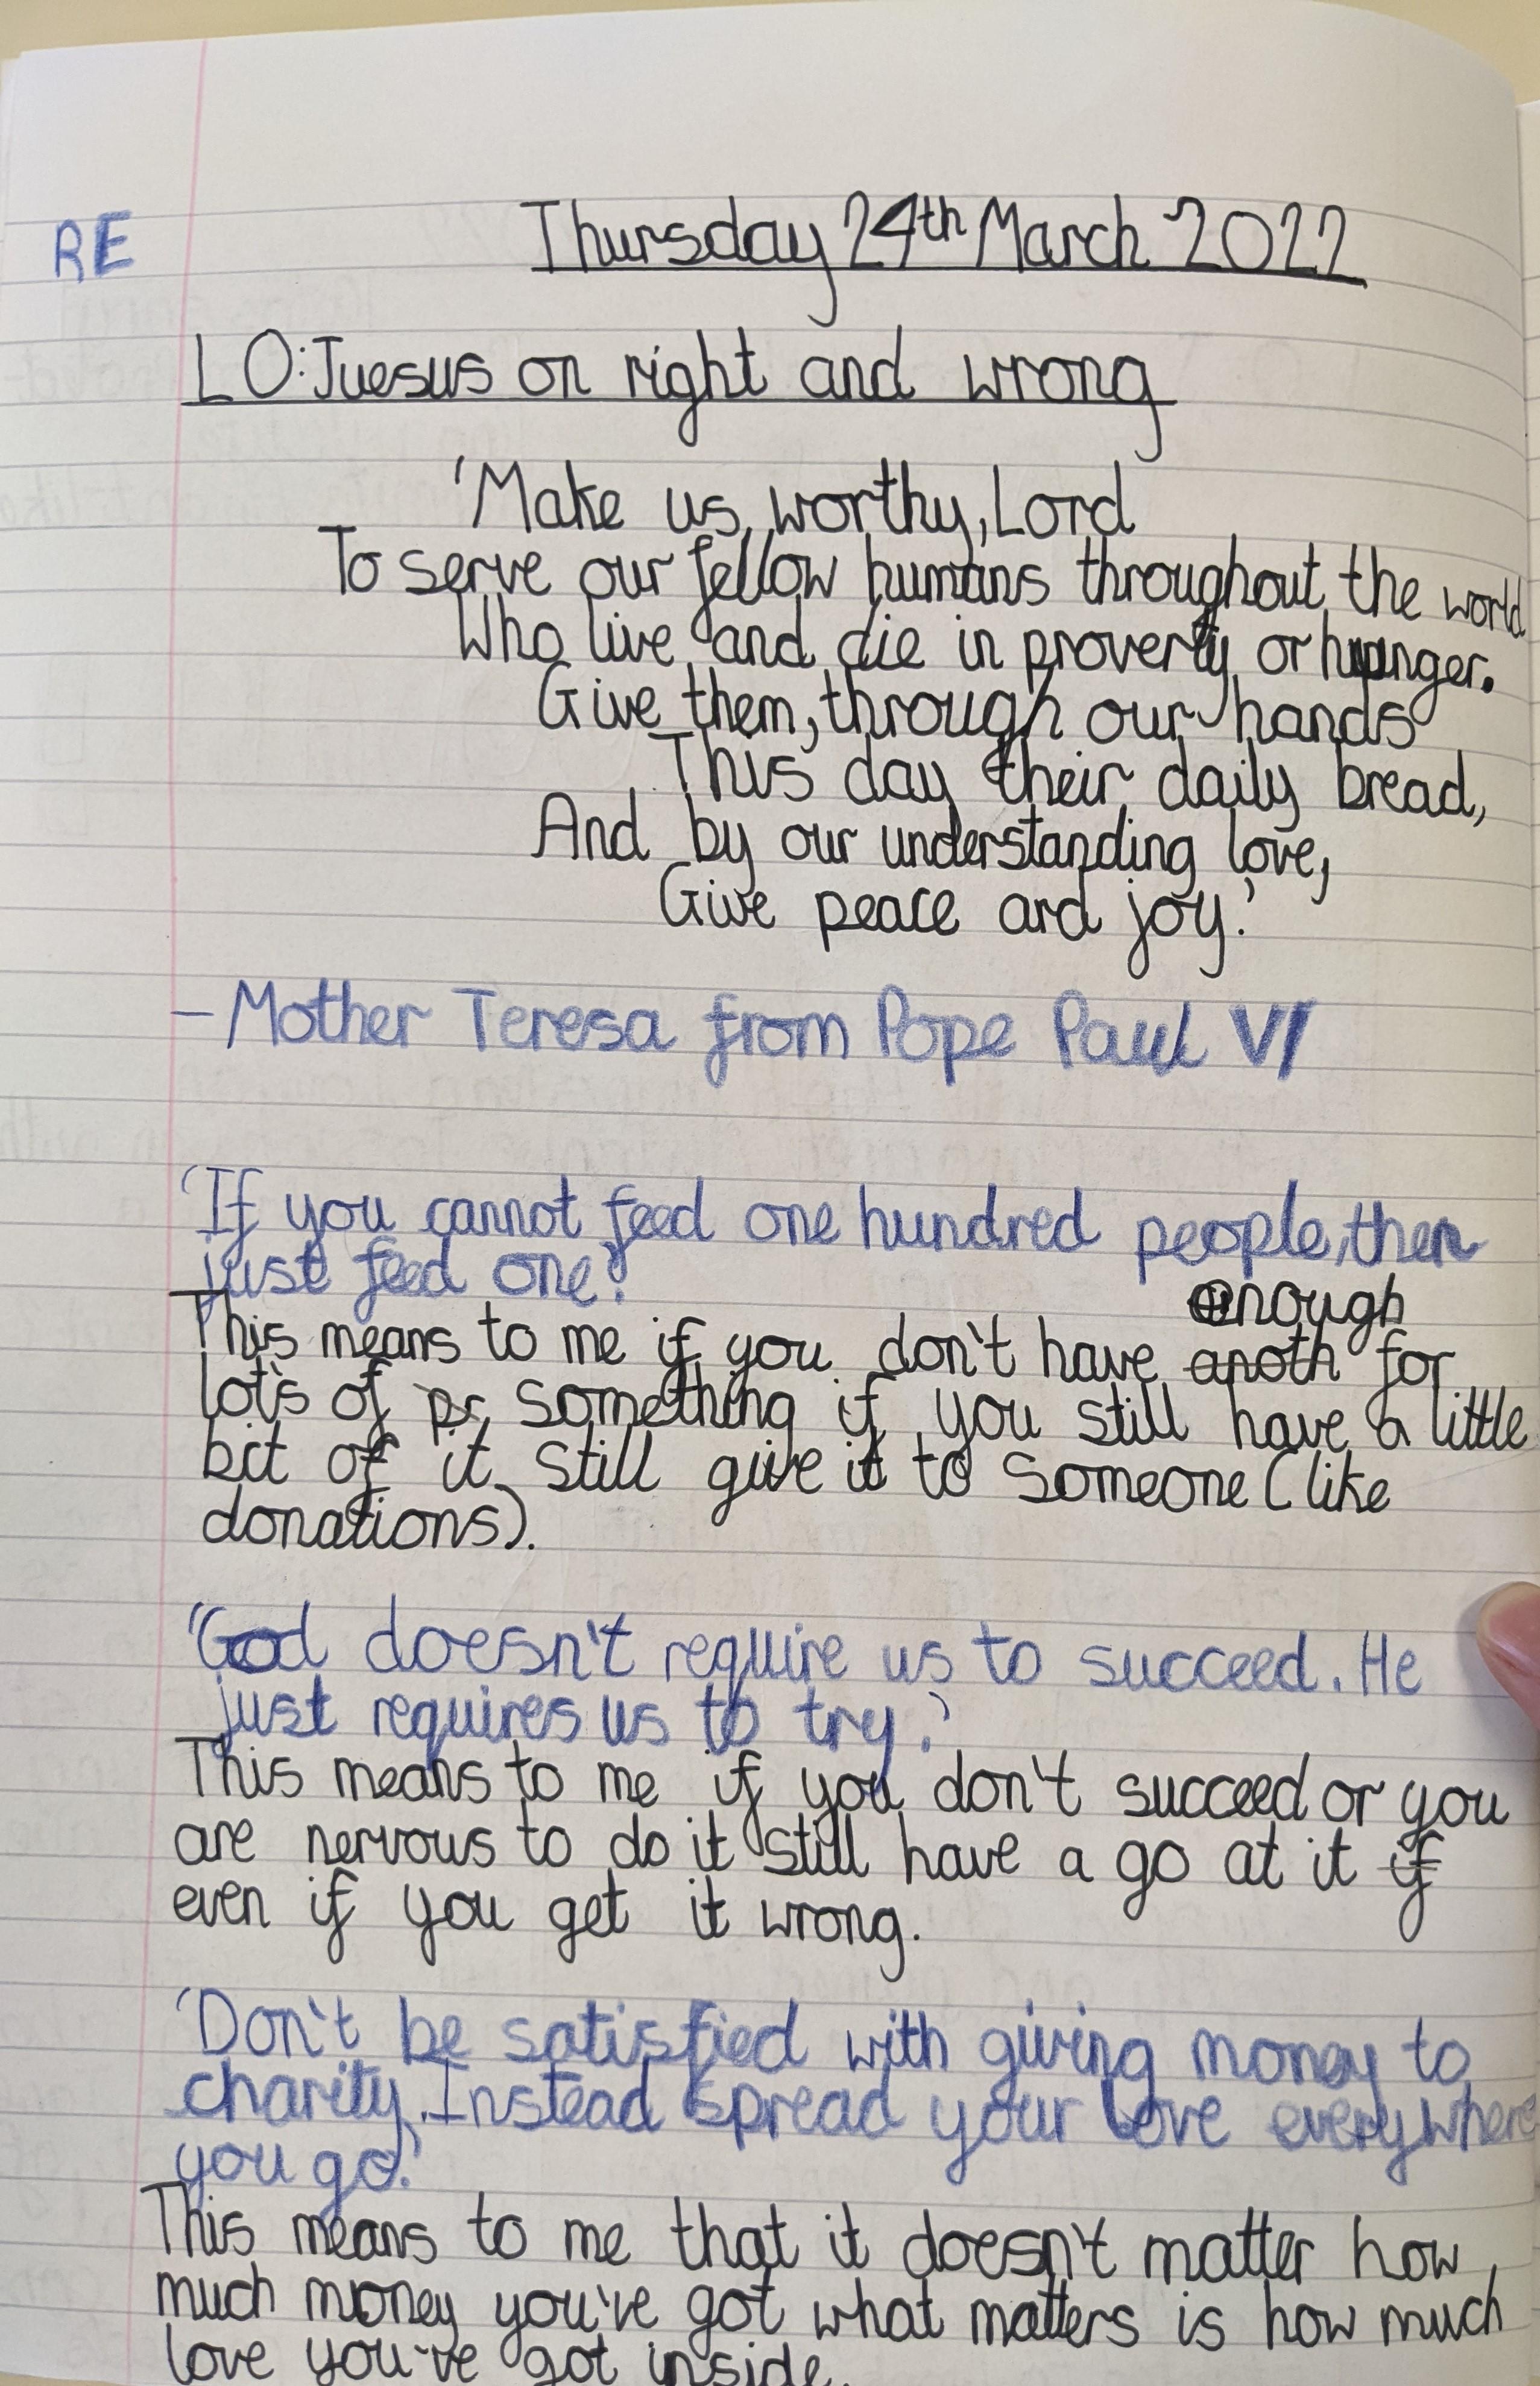 RE
Thursday 24th March 2022
LO: Juesus on right and wrong
'Make us worthy, Lord
To serve our fellow humans throughout the world
Who live and die in proverty or hunger.
Give them, through our hands
This day their daily bread,
And by our understanding love,
Give peace and joy.'
- Mother Teresa from Pope Paul VI
'If you cannot feed one hundred people, then
just feed one.'
enough
This means to me if you don't have anoth for
lot's of pr something if you still have a little
bit of it still give it to someone (like
donations).
'God doesn't require us to succeed. He
just requires us to try.'
This means to me if you don't succeed or you
are nervous to do it still have a go at it if
even if you get it wrong.
'Don't be satisfied with giving money to
charity. Instead spread your love everywhere
you go.'
This means to me that it doesn't matter how
much money you've got what matters is how much
love you've got inside.